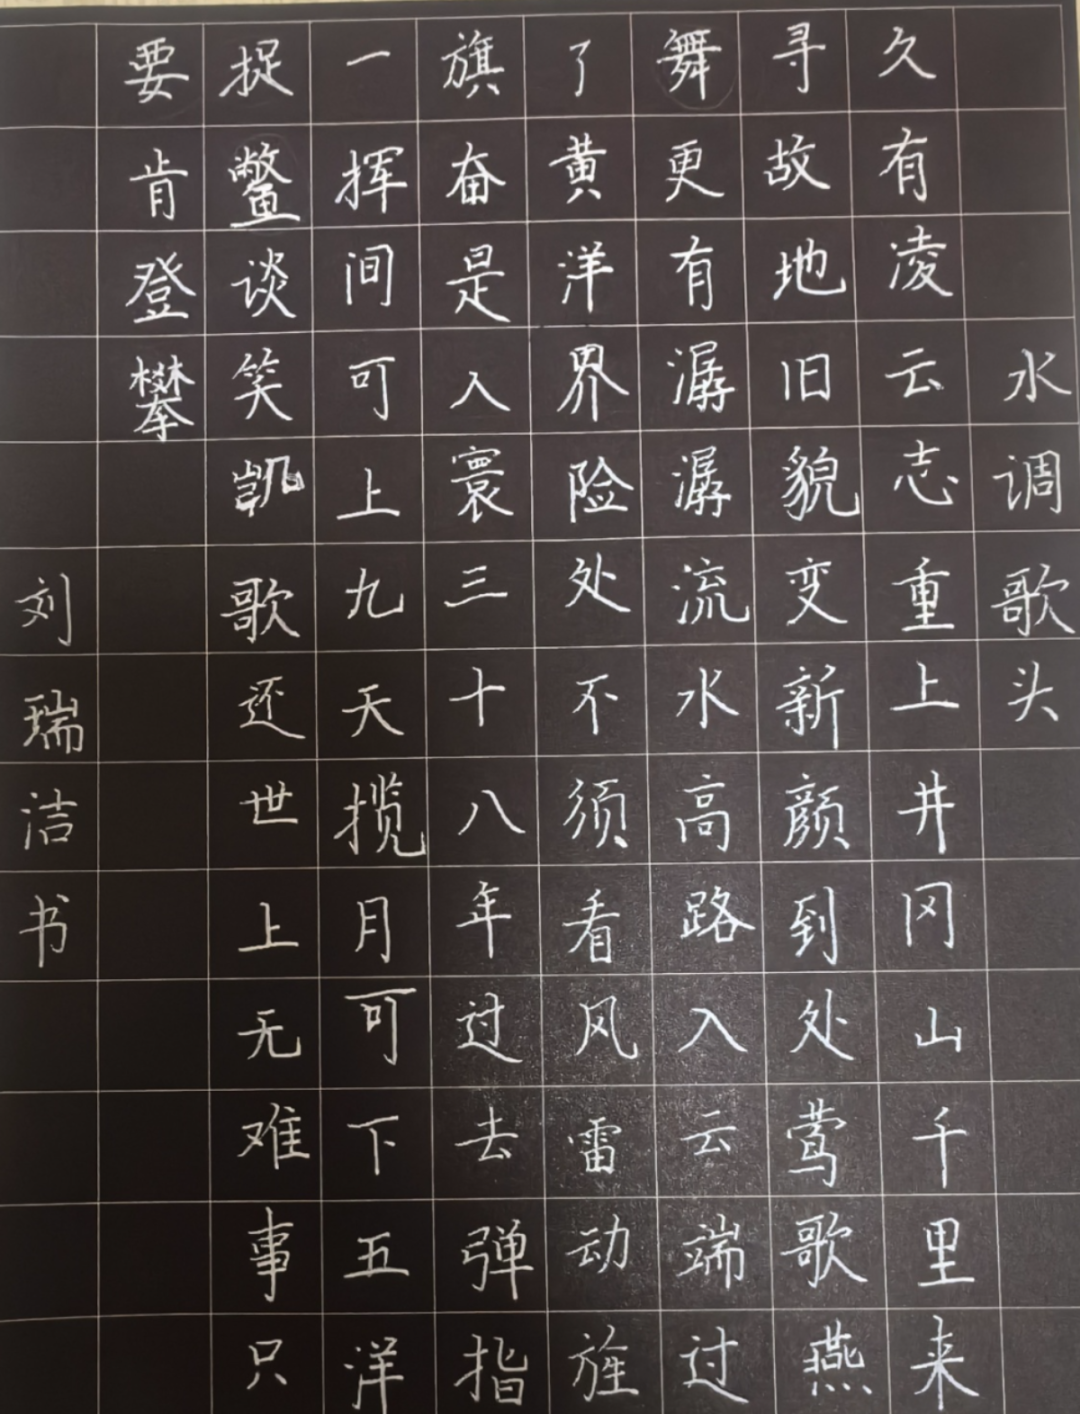 水调歌头
久有凌云志重上井冈山千里来
寻故地旧貌变新颜到处莺歌燕
舞更有潺潺流水高路入云端过
了黄洋界险处不须看风雷动旌
旗奋是入寰三十八年过去弹指
一挥间可上九天揽月可下五洋
捉鳖谈笑凯歌还世上无难事只
要肯登攀
刘瑞洁书